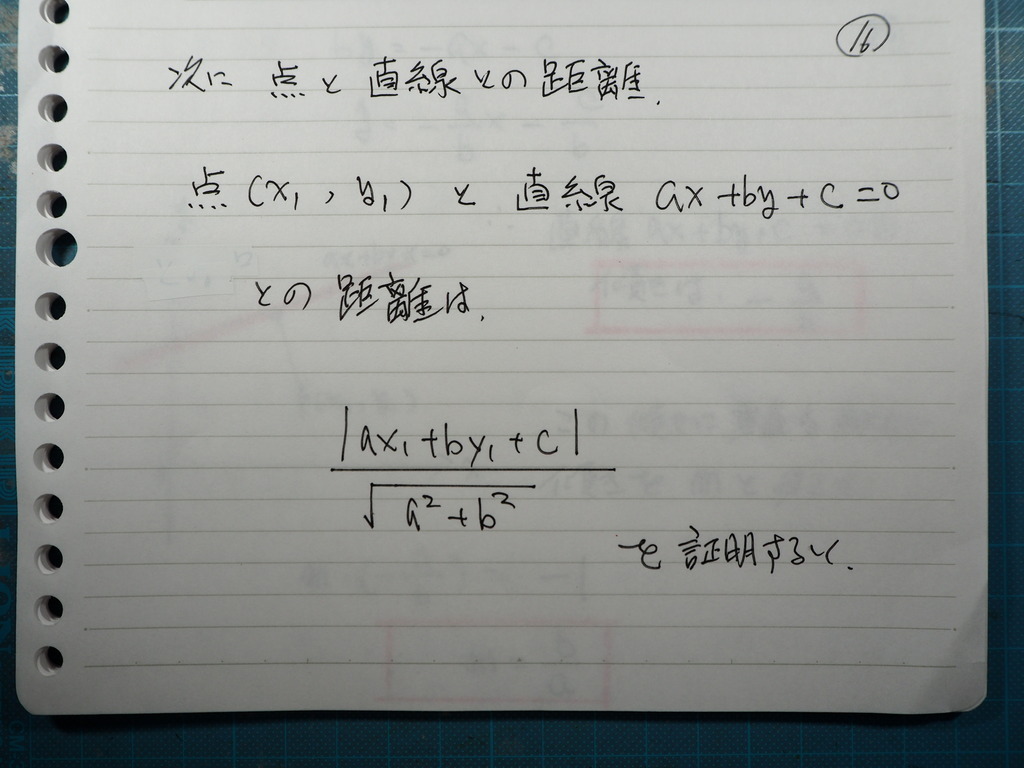 ⑯
次に 点と直線との距離,
点(x₁, y₁)と 直線 ax+by+c=0
との距離は,
|ax₁+by₁+c|
√a²+b²
を証明するよ.